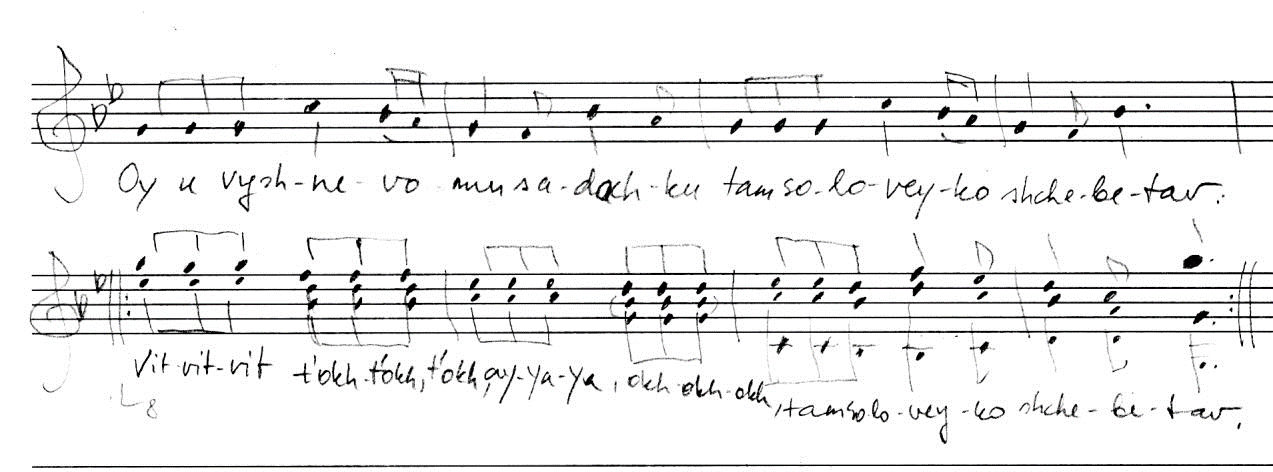 Oy u vysh-ne-vo mu sa-doch-ku tam so-lo-vey-ko shche-be-tav.
Vit-vit-vit t'okh-t'okh, t'okh, ay-ya-ya, okh-okh-okh, tam so lo-vey-ko shche-be-tav.
8